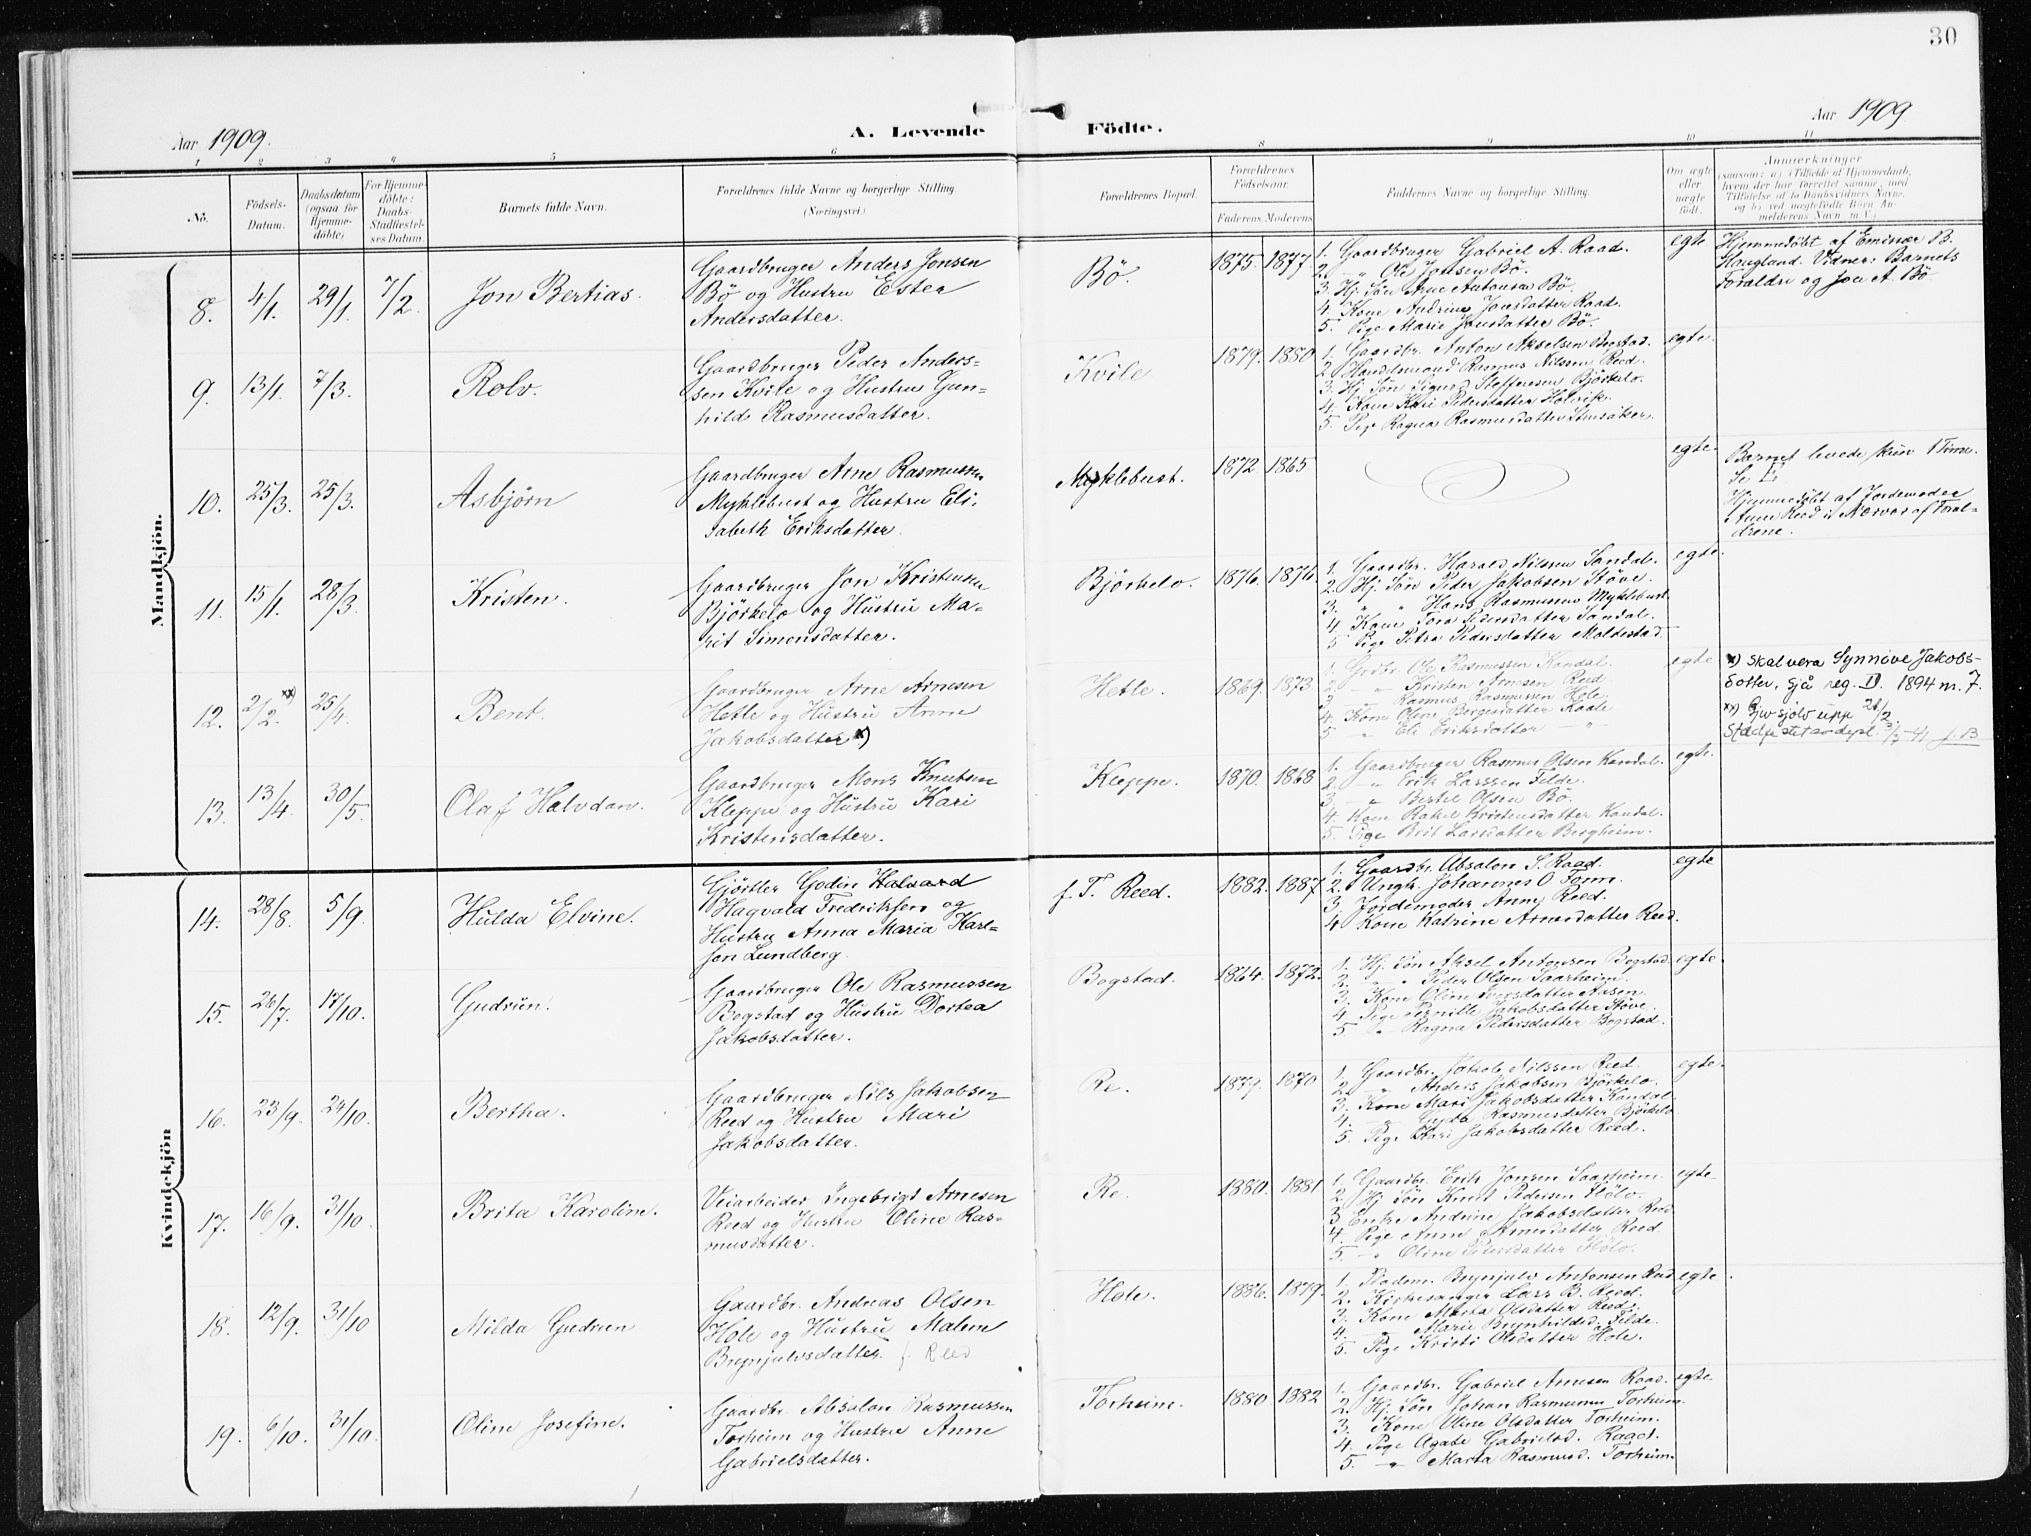 30
Aar 1909.
A. Levende
Födte.
Aar 1909
1 2 3 4 5 6
8 9 10 11
No.
Födsels-Datum.
Daabsdatum (ogsaa for Hjemmedöbte)
For Hjemmedöbte: Daabs-Stadfestelses Datum
Barnets fulde Navn.
Forældrenes fulde Navne og borgerlige Stilling.
(Næringsvei)
Forældrenes Bopæl.
Forældrenes Födselsaar.
Faderens. Moderens
Faddernes Navne og borgerlige Stilling.
Om ægte eller uægte födt.
Anmerkninger
(saasom: a) i Tilfælde af Hjemmedaab, hvem der har forrettet samme, med Tilföielse af to Daabsvidners Navne, og b) ved uægtefödte Börn Anmelderens Navn m. V.)
Mandkjön.
8. 4/1. 29/1. 7/2. Jon Bertias.
Gaardbruger Anders Jonsen
Bö og Hustru Ester
Andersdatter.
Bö. 1875. 1877
1. Gaardbruger Gabriel A. Raad.
2. — " Ole Jonsen Bö.
3. Hj. Søn Arne Antonsen Bö.
4. Kone Andrine Jonsdatter Raad.
5. Pige Marie Jonsdatter Bö.
egte
Hjemmedöbt af Emissær B.
Haugland. Vidner: Barnets
Foraldre og Jon A. Bö
9. 13/1. 7/3. Rolv.
Gaardbruger Peder Anders-
sen Kvile og Hustru Gun-
hild Rasmusdatter.
Kvile 1879. 1880
1. Gaardbr. Anton Akselsen Bogstad.
2. Handelsmand Rasmus Nilssen Reed.
3. Hj. Søn Sigurd Steffensen Björkelo.
4. Kone Kari Pedersdatter Holvik.
5. Pige Ragna Rasmusdatter
egte.
10. 25/3. 25/3. Asbjörn
Gaardbruger Arne Rasmussen
Myklebust og Hustru Eli-
sabeth Eriksdatter.
Myklebust. 1872 1865
egte.
Barnet levede kun 1 Time.
Se
Hjemmedöbt af Jordemoder
Anne Reed i Nærvær af Foræl-
drene.
11. 15/1. 28/3. Kristen.
Gaardbruger Jon Kristensen
Björkelo og Hustru Ma-
rit Simonsdatter.
Björkelo. 1876. 1876.
1. Gaardbr. Harald Nilssen Sandal.
2. Hj. Søn Peder Jakobsen Støve.
3. " " Hans Rasmussen Myklebust.
4. Kone Tora Pedersdatter Sandal.
5 Pige Petra Pedersdatter Moldestad.
egte.
12. 2/2. xx) 25/4. Bent.
Gaardbruger Arne Arnesen
Hetle og Hustru Anne
Jakobsdatter x)
Hetle. 1869. 1873.
1. Grdbr. Ole Rasmussen Kandal.
2. — " Kristen Arnesen Reed.
3 — " Rasmus Rasmussen Hole.
4. Kone Oline Børgesdatter
5 — " Eli Eriksdatter — "
egte
x) Skal vera Synnöve Jakobs-
dotter, sjå reg. II. 1894 nr. 7.
xx) Gjev sjölv upp 28/2
13. 13/4. 30/5. Olaf Halvdan.
Gaardbruger Mons Knutsen
Kleppe og Hustru Kari
Kristensdatter.
Kleppe. 1870. 1868
1. Gaardbruger Rasmus Olsen Kandal.
2. — " Erik Larssen Felde.
3. — " Bertel Olsen Bö.
4. Kone Rakel Kristensdatter Kandal.
5. Pige Brit Larsdatter Bergheim.
egte.
Kvindekjön
14. 28/8. 5/9. Hulda Elvine.
Gjørtler Godin Halvard
Hagvald Fredriksen og
Hustru Anna Maria Karl-
sen Lundberg.
f. T. Reed. 1882. 1887.
1. Gaardbr. Absalon S. Raad.
2. Ungk. Johannes O.
3. Jordemoder Anne Reed.
4. Kone Katrine Arnesdatter Reed.
egte
15. 26/7. 17/10. Gudrun.
Gaardbruger Ole Rasmussen
Bogstad og Hustru Dortea
Jakobsdatter.
Bogstad. 1864. 1872.
1. Hj. Søn Aksel Antonsen Bogstad.
2. " " Peder Olsen Saarheim.
3. Kone Oline Iversdatter Aasen.
4. Pige Pernille Jakobsdatter Støve.
5. — " Ragna Pedersdatter Bogstad.
egte.
16. 23/9. 24/10. Bertha.
Gaardbruger Nils Jakobsen
Reed og Hustru Mari
Jakobsdatter.
Re. 1879. 1870
1. Gaardbr. Jakob Nilssen Reed.
2. " Anders Jakobsen Björkelo.
3. Kone Mari Jakobsdatter Kandal.
4. — " Gyda Rasmusdatter Björkelo
5. Pige Mari Jakobsdatter Reed.
egte.
17. 16/9. 31/10. Brita Karoline.
Veiarbeider Ingebrigt Arnesen
Reed og Hustru Oline Ras-
musdatter.
Re. 1880. 1881
1. Gaardbr. Erik Jonsen Saarheim.
2. Hj. Søn Knut Pedersen Hölo.
3 Enke Andrine Jakobsdatter Reed
4. Pige Anne Arnesdatter Reed.
5. — " Oline Petersdatter Hölo.
egte
18. 12/9. 31/10 Milda Gudrun
Gaardbr. Andreas Olsen
Hole og Hustru Malene
Brynjulvsdatter. f. Reed
Hole. 1886. 1879.
1. Brynjulv Antonsen Reed
2. Kirkesanger Lars B. Reed.
3. Kone Marta Olsdatter Reed.
4. — " Marie Brynhildsd. Felde.
5. Pige Kristi Olsdatter Hole.
egte.
19. 6/10. 31/10. Oline Josefine.
Gaardbr. Absalon Rasmussen
Torheim og Hustru Anne
Gabrielsdatter.
Torheim. 1880 1882
1. Gaardbr. Gabriel Arnesen Raad.
2. Hj. Søn Johan Rasmussen Torheim.
3. Kone Oline Olsdatter Torheim.
4. Pige Agate Gabrielsd. Raad.
5. — " Marta Rasmusd. Torheim.
egte